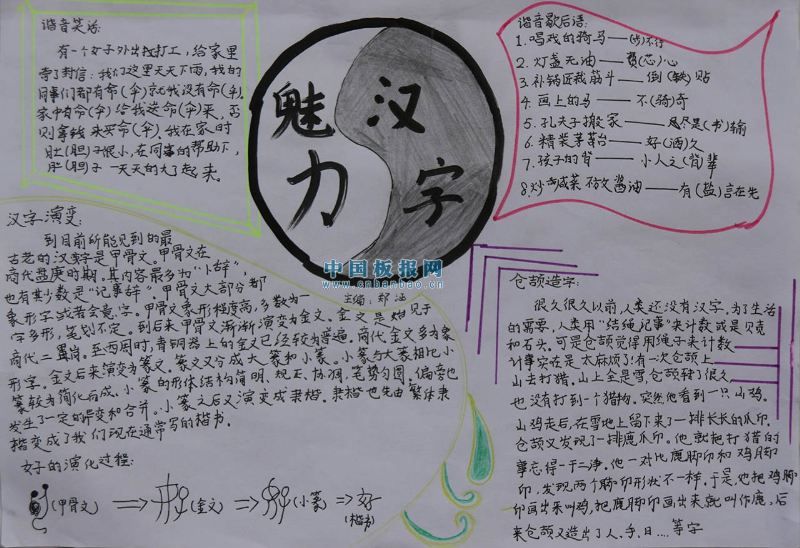 谐音笑话:
有一个女子外出找打工,给家里
寄了封信:我们这里天天下雨,我的
同事们都有命(伞)就我没有命(伞),
家中有命(伞)给我送命(伞)来,否
则拿钱来买命(伞)。我在家时
肚(胆)子很小,在同事的帮助下,
肚(胆)子一天天的大了起来。
魅力
汉字
中国板报网
www.cnbanbao.cn
主编:郑
谐音歇后语:
1.唱戏的骑马——(步)不行
2.灯盏无油——费(芯)心
3.补锅匠栽筋斗——倒(铁)贴
4.画上的马——不(骑)奇
5.孔夫子搬家——尽是(书)输
6.精装茅台——好(酒)久
7.孩子的背——小人之(背)辈
8.炒咸菜不放酱油——有(盐)言在先
汉字演变:
到目前所能见到的最
古老的汉字是甲骨文。甲骨文在
商代盘庚时期,其内容最多为“卜辞”,
也有其少数是“记事辞”。甲骨文大部分都
象形字或者会意字。甲骨文象形程度高,多数为一
字多形,笔划不定。到后来甲骨文渐渐演变为金文。金文是始见于
商代二里岗。至西周时,青铜器上的金文已经较为普遍。商代金文多为象
形字。金文后来演变为篆文。篆文又分成大篆和小篆。小篆与大篆相比小
篆较为简化而成。小篆的形体结构简明、规正、协调,笔势匀圆,偏旁也
发生了一定的异变和合并。小篆之后又演变成隶楷。隶楷也先由繁体隶
楷变成了我们现在通常写的楷书。
好子的演化过程:
(甲骨文) ⇒ (金文) ⇒ (小篆) ⇒ 好
(楷书)
仓颉造字:
很久很久以前,人类还没有汉字,为了生活
的需要,人类用“结绳记事”来计数或是贝壳
和石头。可是仓颉觉得用绳子来计数
计事实在是太麻烦了!有一次仓颉上
山去打猎,山上全是雪,仓颉转了很久
也没有打到一个猎物。突然他看到一只山鸡。
山鸡走后,在雪地上留下来了一排长长的爪印。
仓颉又发现了一排鹿爪印。他就把打猎的
事忘得一干二净。他一对比鹿脚印和鸡脚
印,发现两个脚印形状不一样。于是,他把鸡脚
印画出来叫鸡,把鹿脚印画出来就叫作鹿,后
来仓颉又造出了人、手、日....等字